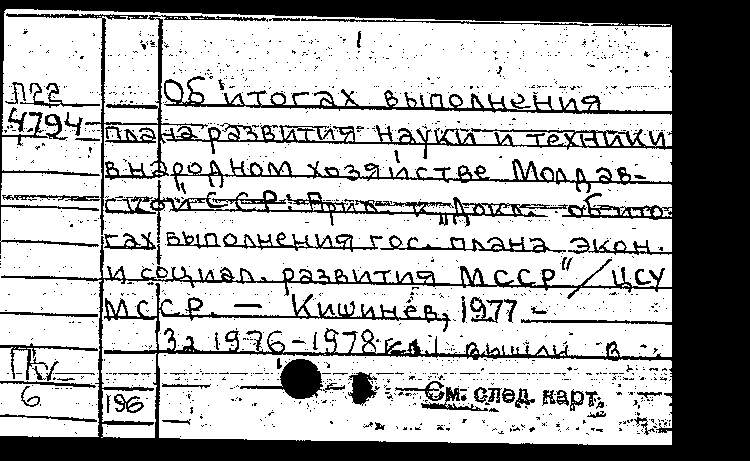 П22
4794
Об итогах выполнения
плана развития науки и техники
в народном хозяйстве Молдав-
ской ССР: Прил. к „Докл. об ито-
гах выполнения гос. плана экон.
и социал. развития МССР" / ЦСУ
МССР. — Кишинев, 1977 -
За 1976-1978 вышли в
6
196
См. след. карт.